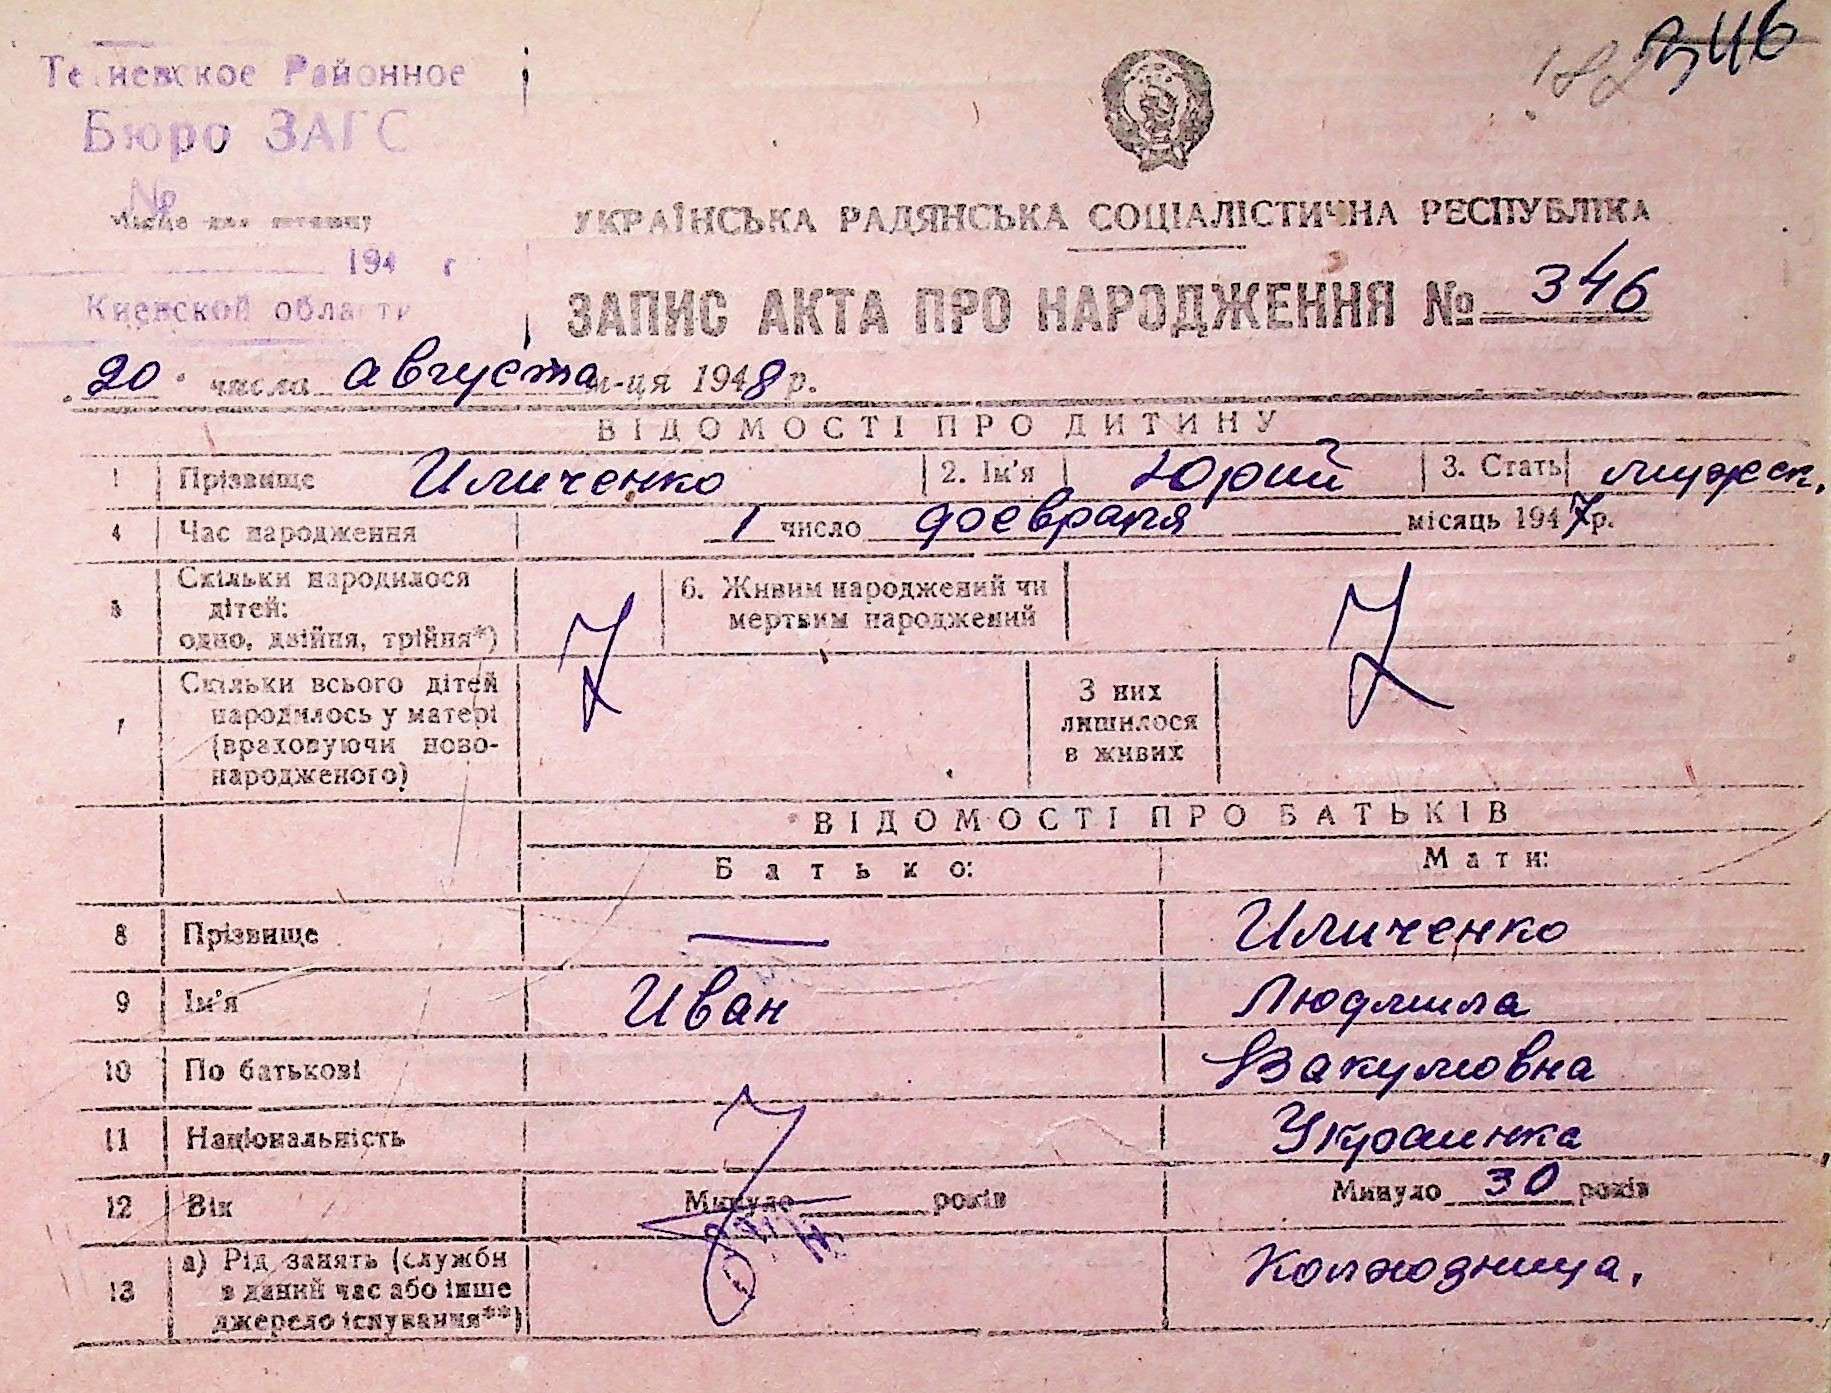 182 346
Районное
Бюро ЗАГС
№
194 г
Киевской области
УКРАЇНСЬКА РАДЯНСЬКА СОЦІАЛІСТИЧНА РЕСПУБЛІКА
ЗАПИС АКТА ПРО НАРОДЖЕННЯ № 346
20 числа августа м-ця 1948 р.
ВІДОМОСТІ ПРО ДИТИНУ
1 Прізвище Иличенко 2. Ім'я Юрий 3. Стать мужск.
4 Час народження 1 число февраля місяць 1947 р.
5 Скільки народилося
дітей:
одно, двійня, трійня*)
6. Живим народжений чи
мертвим народжений
7 Скільки всього дітей
народилось у матері
(враховуючи ново-
народженого)
З них
лишилося
в живих
ВІДОМОСТІ ПРО БАТЬКІВ
Батько: Мати:
8 Прізвище — Иличенко
9 Ім'я Иван Людмила
10 По батькові Вакумовна
11 Національність Украинка
12 Вік Минуло років Минуло 30 років
13 а) Рід занять (служби
в даний час або інше
джерело існування**)
Колхозница.